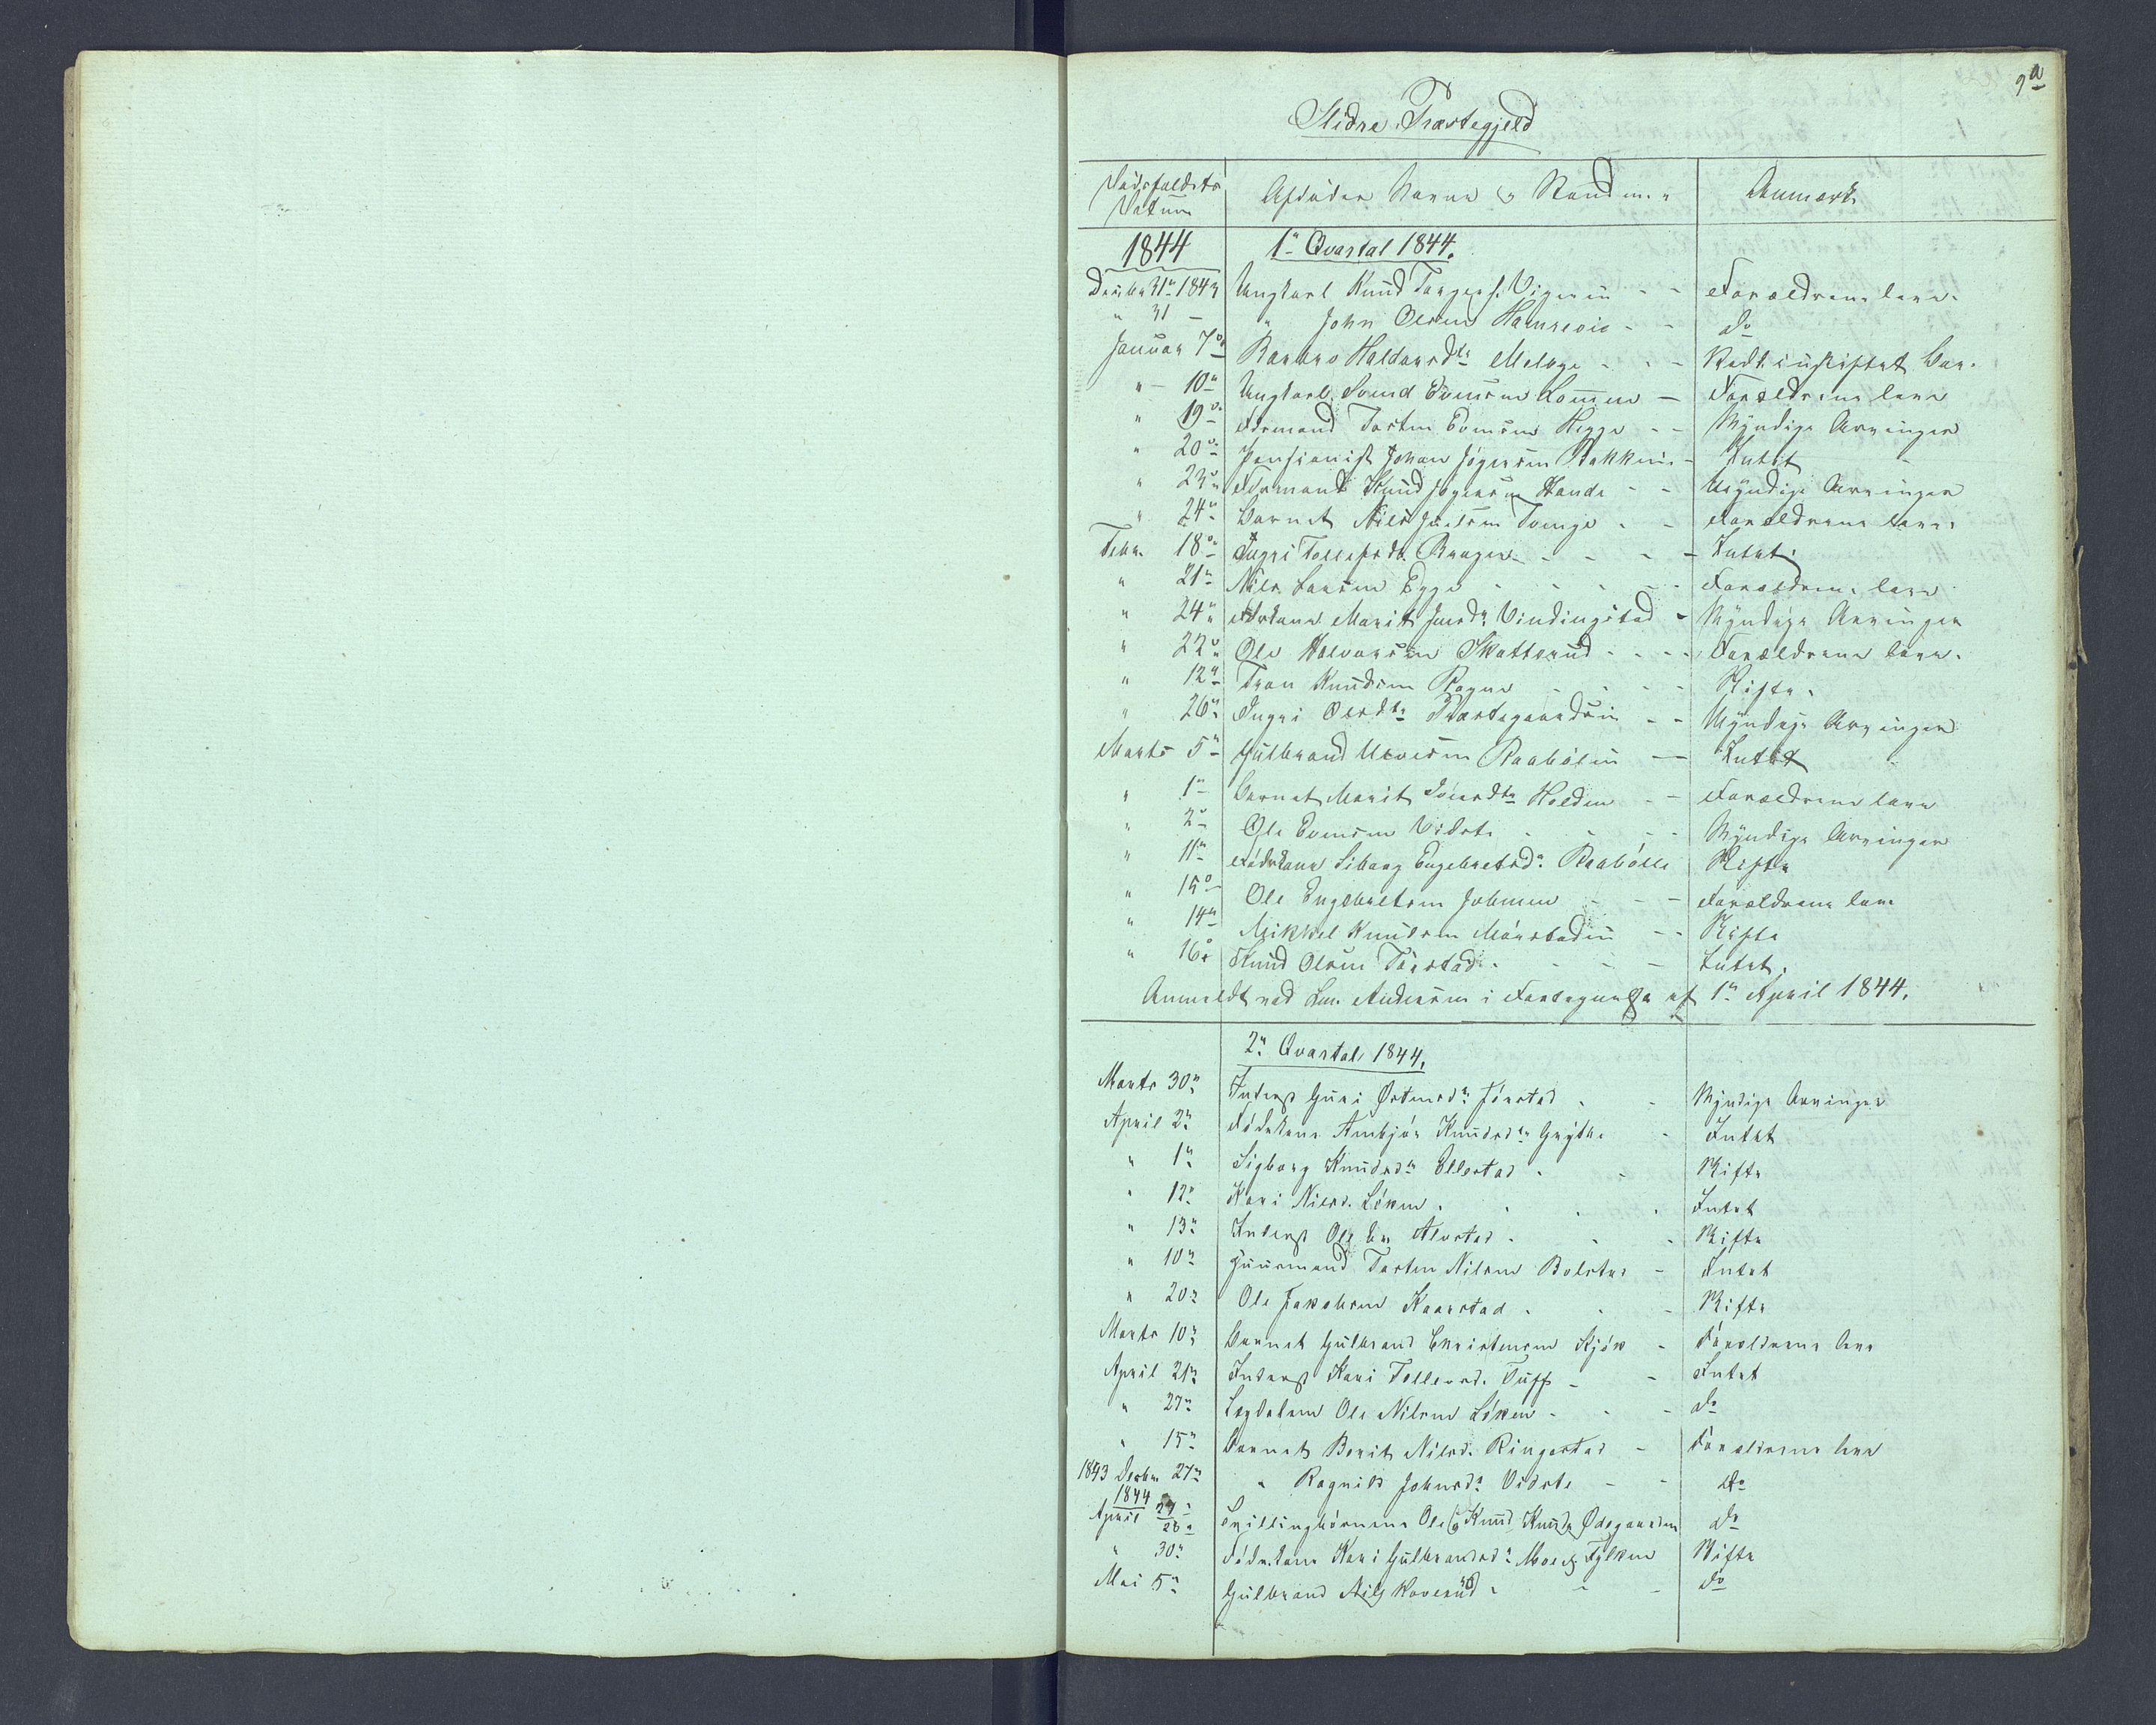 9a
Slidre Præstegjeld
Dødsfaldets Datum
Afdødes Navne og Stand m. v
Anmærk
1844
1ste Qvartal 1844.
Decbr 31te 1843 Ungkarl Knud Torgers. Vigerin - - Forældrene leve.
" 31 - " John Olesen Hamreviç - - do
Januar 7de Barbro Haldorsdtr Melbye - - - uskiftet boe.
" - 10de Ungkarl Svend Evensen Lommen - Forældrene leve
" 19de Fdrmand Tosten Evensen Hegge - - Myndige Arvinger
" 20de Pensionist Johan Jögersen Bakken - Intet
" 23de Fdrmand Knud Jögersen Hande - - Myndige Arvinger
" 24de Barnet Nils Juelsen Tvenge - - Forældrene leve.
Febr. 18de Ingri Tollefsdtr Brager - - - - Intet.
" 21de Nils Larsen Egge - - - - Forældrene leve
" 24de Fdrkone Marit Iversdr Vindingstad - Myndige Arvinger
" 22de Ole Halvorsen Skatterud - - - Forældrene leve.
" 12te Tron Knudsen Rogne - - - Skifte.
" 26de Ingri Olesdtr Præstegaardsein - - Myndige Arvinger
Marts 5te Gulbrand Ulvesen Raabölin - Intet
" 1te Barnet Marit Iversdtr Holden - - Forældrene leve
" 2de Ole Evensen Vidste - - - Myndige Arvinger
" 11te Födrkone Siborg Engebretsdr Raabölle Skifte
" 15de Ole Engebretsen Johnsen - - - Forældrene leve
" 14de Mikkel Knudsen Mörstadin - - Skifte
" 16de Knud Olesen Törstad - - - - Intet.
Anmeldt ved Lm. Andersen i Fortegnelse af 1te April 1844.
2det Qvartal 1844.
Marts 30te Inderst Guri Östensdr Jörstad - - Myndige Arvinger
April 2de Födrkone Ambjör Knudsdtr Grythe - Intet
" 1te Sigborg Knudsdtr Ellestad - - Skifte
" 12te Kari Nilsd. Löken - - - - Intet
" 13de Inderst Ole Alvstad - - - Skifte
" 10de Huusmand Tosten Nilsen Bolstad - Intet
" 20de Ole Jakobsen Kaarstad - - - Skifte
Marts 10de Barnet Gulbrand Christensen Kjök - Forældrene leve
April 21de Inderst Kari Tollevsd. Tuff - - Intet
" 27de Lægdslem Ole Nilsen Löken - - - do
" 15de Barnet Berit Nilsd. Ringestad - Forældrene leve
1843 Decbr. 27de " Ragnild Johnsdr Vidste - - do
1844
April 27/28de Tvillingbörnene Ole og Knud Knuds Ödegaarden do
" 30te Födr.kone Kari Gulbrandsdr Moe Fylken Skifte
Mai 5te Gulbrand Nils Roverud - - - do